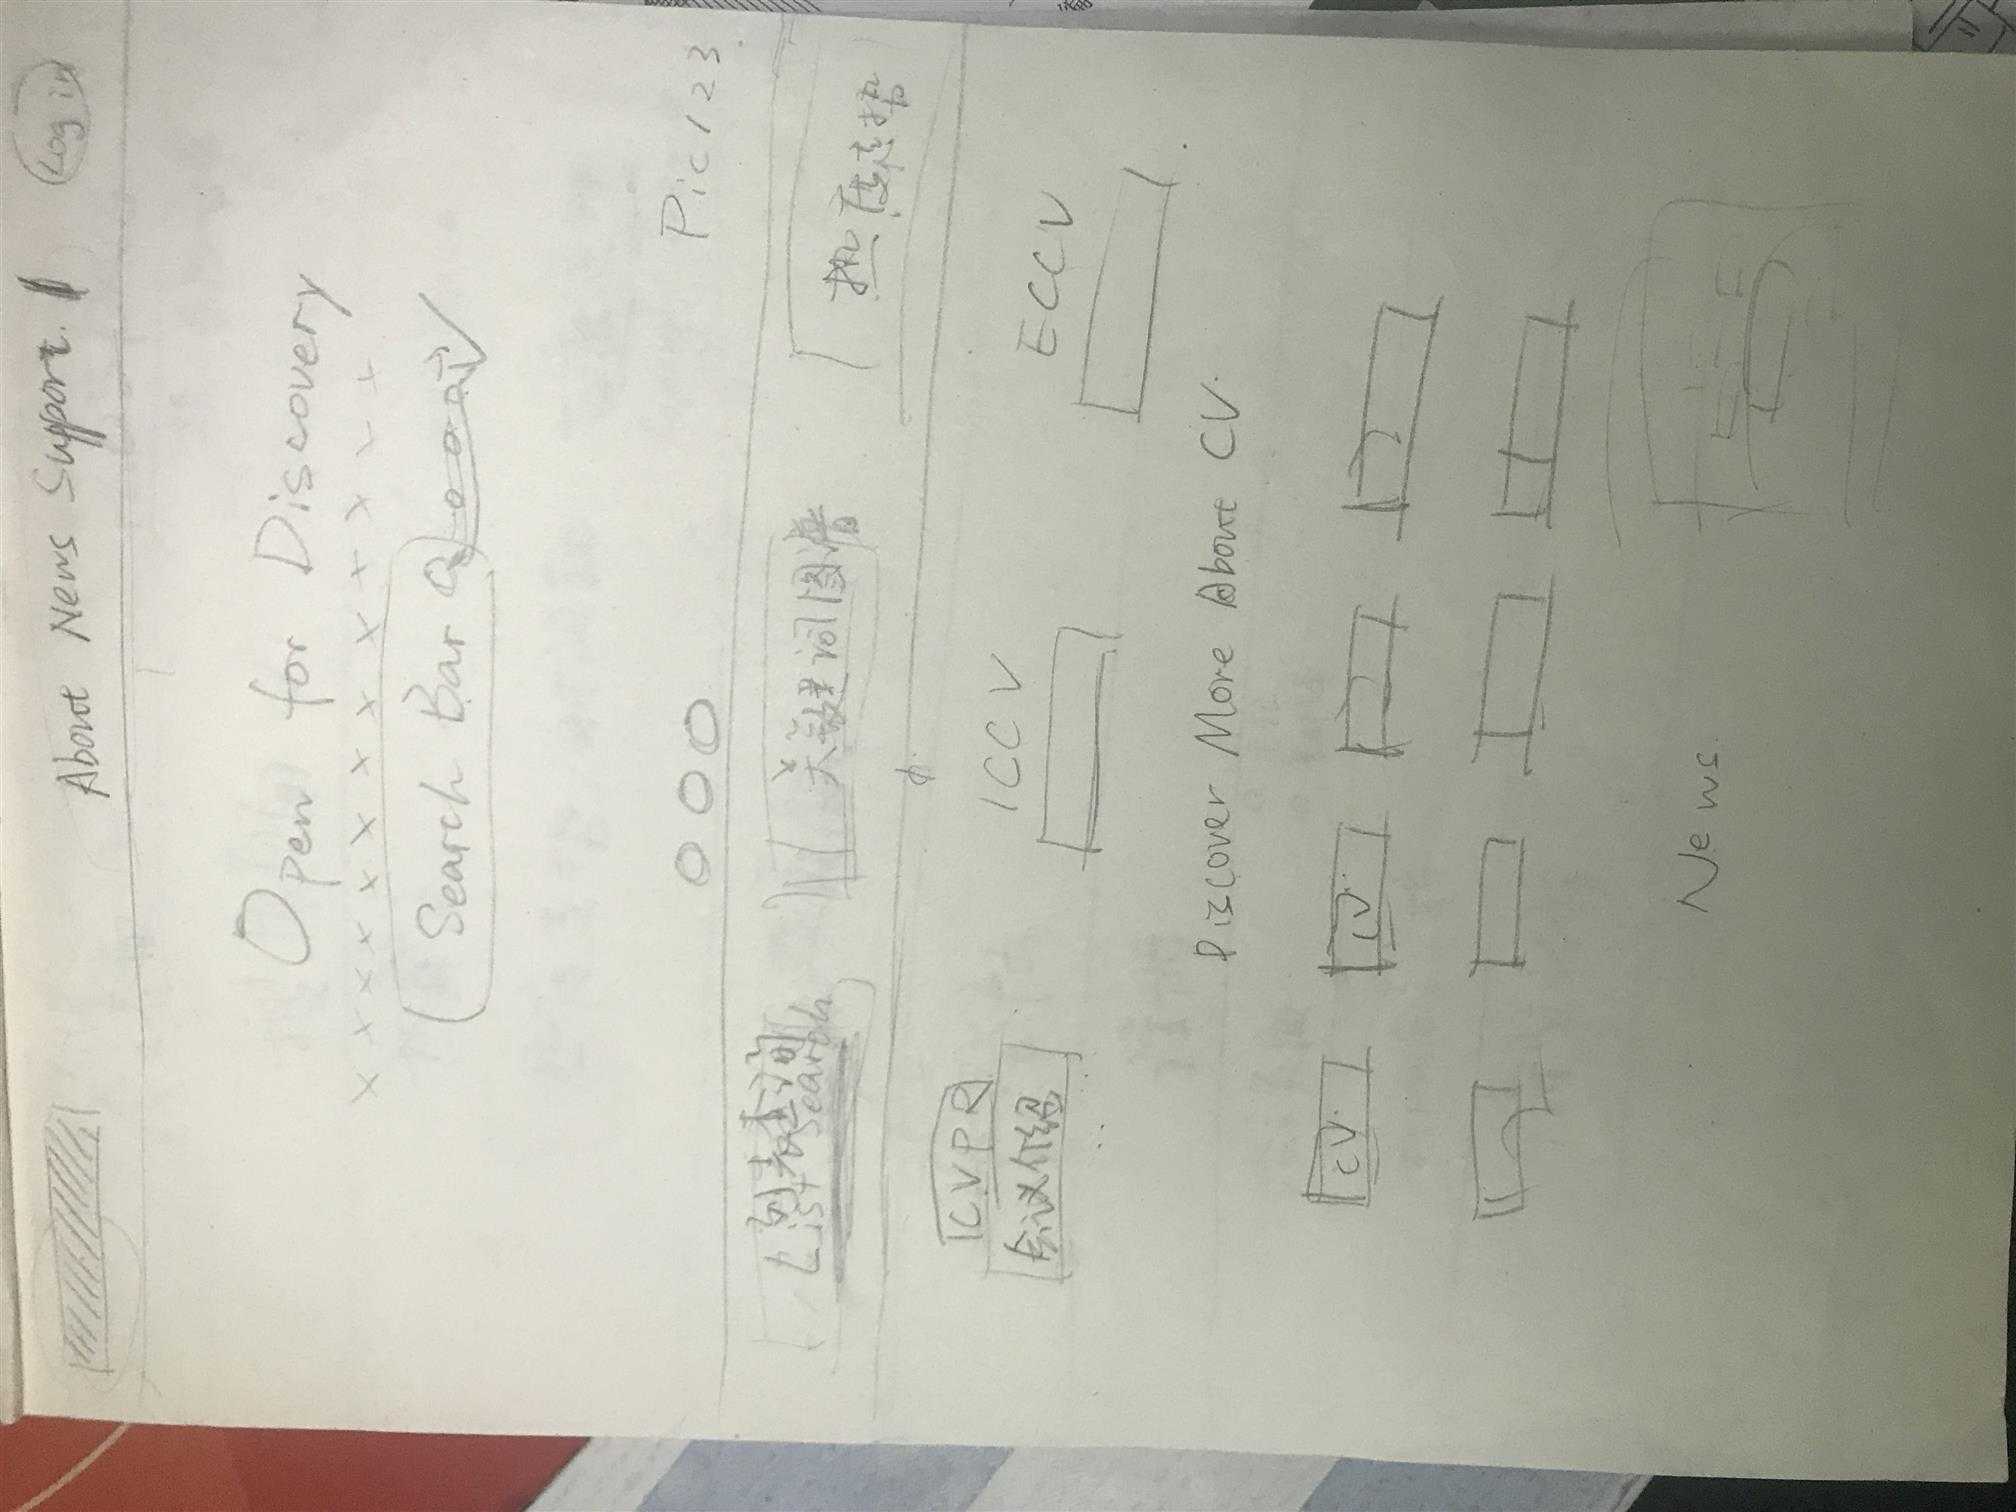 About News Support Log in
Open for Discovery
x x x x x x x x x x x x
Search Bar
Pic 1 2 3
列表查询
List Search
关键词图谱
热度趋势
ICVPR
ICCV
ECCV
会议介绍
Discover More About CV.
CV.
CV.
News